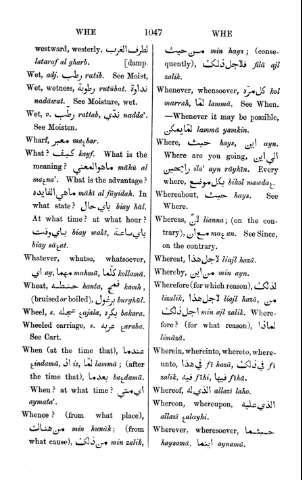 WHE 1047 WHE
westward, westerly, لطرف الغرب
latarof al gharb. [damp.
Wet, adj. رطب ratib. See Moist,
Wet, wetness, رطوبة rutúbat. نداوة
nadáwat. See Moisture, wet.
Wet, v. رطب ratlab, ندى nadda'.
See Moisten.
Wharf,
What? كيف kayf. What is the
meaning? ماهو المعني máhú al
What is the advantage?
ما هي الفايده máhí al fáyidah. In
what state? باي حال biay hál.
At what time? at what hour?
باي وقت biay wakt, باي ساعة
Whatever, whatso, whatsoever,
اي ay, مهما mahmá, كلما kollamá.
Wheat, حنطه hanta, قمح kamh,
(bruised or boiled), برغول burghúl.
Wheel, s. عجله بكره bakara.
Wheeled carriage, s. عربه
See Cart.
When (at the time that), عندما
اذ is, لما lammá; (after
the time that), بعدما
When? at what time? أي متي
aymata'.
Whence? (from what place),
من هنالك min hanák; (from
what cause), من ذلك min zalik,
من حيث min hays; (conse-
quently), فلاجل ذلك fila ajl
zalik.
Whenever, whensoever, كل مرة kol
marrah, لما lammá. See When.
—Whenever it may be possible,
لما يمكن lammá yamkin.
Where, حيث hays, اين ayn.
Where are you going, الي اين
رايحين ila' ayn ráyhín. Every
where, بكل موضع
Whereabout, حيث hays. See
Where.
Whereas, لان lianna; (on the con-
trary), See Since,
on the contrary.
Whereat, لاجل هذا liajl hazá.
Whereby, من اين min ayn.
Wherefore (for which reason), لذلك
lizalik, لاجل هذا liajl hazá,
من اجل ذلك min ajl zalik. Where-
fore? (for what reason), لماذا
limázá.
Wherein, whereinto, whereto, where-
unto, في هذا fi hazá, في ذلك fi
zalik, فيه fihi, فيها fihá.
Whereof, الذي له allazí laho.
Whereon, whereupon, الذي عليه
allazí
Wherever, wheresoever, حيثما
haysomá, اينما aynamá.